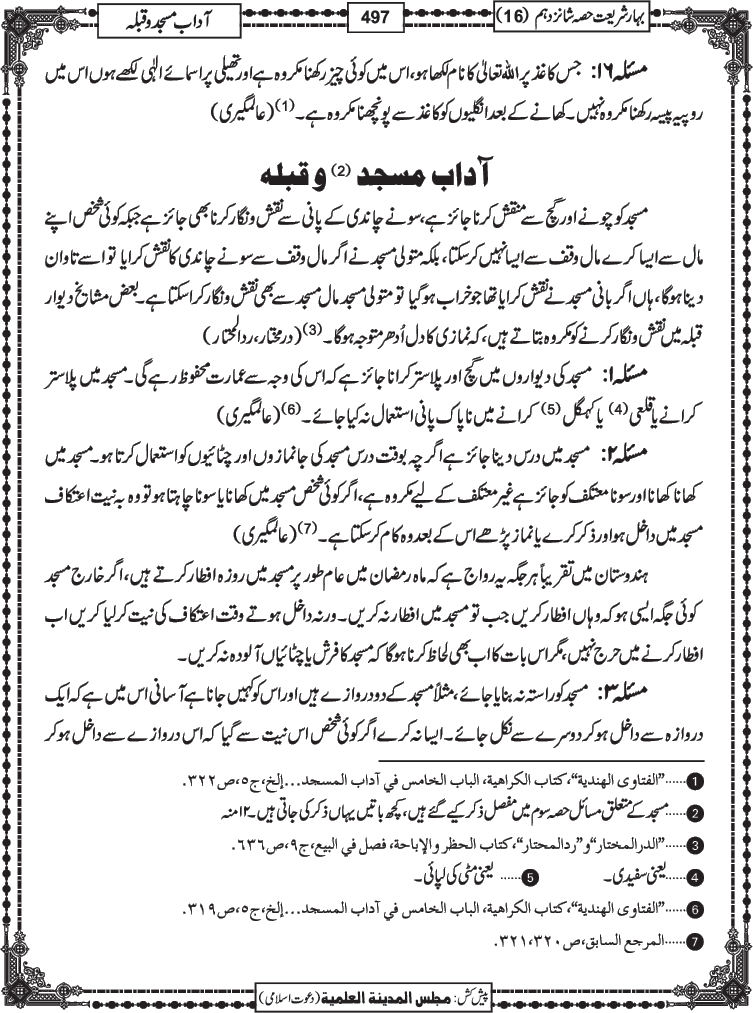 بہار شریعت حصہ شانزدہم (16)
497
آداب مسجد و قبلہ
مسئلہ ۱۶: جس کاغذ پر اللہ تعالیٰ کا نام لکھا ہو، اس میں کوئی چیز رکھنا مکروہ ہے اور تھیلی پر اسمائے الٰہی لکھے ہوں اس میں
روپیہ پیسہ رکھنا مکروہ نہیں۔ کھانے کے بعد انگلیوں کو کاغذ سے پونچھنا مکروہ ہے۔ (1) (عالمگیری)
آداب مسجد (2) و قبلہ
مسجد کو چونے اور گچ سے منقش کرنا جائز ہے، سونے چاندی کے پانی سے نقش و نگار کرنا بھی جائز ہے جبکہ کوئی شخص اپنے
مال سے ایسا کرے مال وقف سے ایسا نہیں کرسکتا، بلکہ متولی مسجد نے اگر مال وقف سے سونے چاندی کا نقش کرایا تو اسے تاوان
دینا ہوگا، ہاں اگر بانی مسجد نے نقش کرایا تھا جو خراب ہوگیا تو متولی مسجد مال مسجد سے بھی نقش و نگار کراسکتا ہے۔ بعض مشایخ دیوار
قبلہ میں نقش و نگار کرنے کو مکروہ بتاتے ہیں، کہ نمازی کا دل اُدھر متوجہ ہوگا۔ (3) (درمختار، ردالمحتار)
مسئلہ ۱: مسجد کی دیواروں میں گچ اور پلاستر کرانا جائز ہے کہ اس کی وجہ سے عمارت محفوظ رہے گی۔ مسجد میں پلاستر
کرانے یا قلعی (4) یا کہگل (5) کرانے میں ناپاک پانی استعمال نہ کیا جائے۔ (6) (عالمگیری)
مسئلہ ۲: مسجد میں درس دینا جائز ہے اگرچہ بوقت درس مسجد کی جانمازوں اور چٹائیوں کو استعمال کرتا ہو۔ مسجد میں
کھانا کھانا اور سونا معتکف کو جائز ہے غیر معتکف کے لیے مکروہ ہے، اگر کوئی شخص مسجد میں کھانا یا سونا چاہتا ہو تو وہ بہ نیت اعتکاف
مسجد میں داخل ہو اور ذکر کرے یا نماز پڑھے اس کے بعد وہ کام کرسکتا ہے۔ (7) (عالمگیری)
ہندوستان میں تقریباً ہر جگہ یہ رواج ہے کہ ماہ رمضان میں عام طور پر مسجد میں روزہ افطار کرتے ہیں، اگر خارج مسجد
کوئی جگہ ایسی ہو کہ وہاں افطار کریں جب تو مسجد میں افطار نہ کریں۔ ورنہ داخل ہوتے وقت اعتکاف کی نیت کرلیا کریں اب
افطار کرنے میں حرج نہیں، مگر اس بات کا اب بھی لحاظ کرنا ہوگا کہ مسجد کا فرش یا چٹائیاں آلودہ نہ کریں۔
مسئلہ ۳: مسجد کو راستہ نہ بنایا جائے، مثلاً مسجد کے دو دروازے ہیں اور اس کو کہیں جانا ہے آسانی اس میں ہے کہ ایک
دروازہ سے داخل ہو کر دوسرے سے نکل جائے۔ ایسا نہ کرے اگر کوئی شخص اس نیت سے گیا کہ اس دروازے سے داخل ہو کر
1 ......"الفتاوی الھندیۃ"، کتاب الکراھیۃ، الباب الخامس في آداب المسجد...إلخ، ج٥، ص٣٢٢.
2 ......مسجد کے متعلق مسائل حصہ سوم میں مفصل ذکر کیے گئے ہیں، کچھ باتیں یہاں ذکر کی جاتی ہیں۔ ۱۲منہ
3 ......"الدرالمختار" و "ردالمحتار"، کتاب الحظر والإباحۃ، فصل في البیع، ج٩، ص٦٣٦.
4 ......یعنی سفیدی۔ 5 ......یعنی مٹی کی لپائی۔
6 ......"الفتاوی الھندیۃ"، کتاب الکراھیۃ، الباب الخامس في آداب المسجد...إلخ، ج٥، ص٣١٩.
7 ......المرجع السابق، ص٣٢٠، ٣٢١.
پیش کش: مجلس المدینۃ العلمیۃ (دعوت اسلامی)